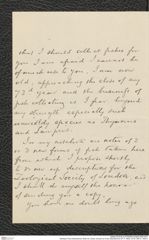 that I should collect fishes for
you I am afraid I cannot be
of much use to you. I am now
old, approaching the close of my
73d year and the business of
fish collecting is I fear beyond
my strength especially such
unwieldy species as Thynnus
and Lampris.
I have my notes on notes of 2
or 3 new forms of fish taken here
from which I propose shortly
to draw up descriptions for the
Zoological Society of London, and
I shall do myself the honor
of sending you a copy.
You have no doubt long ago